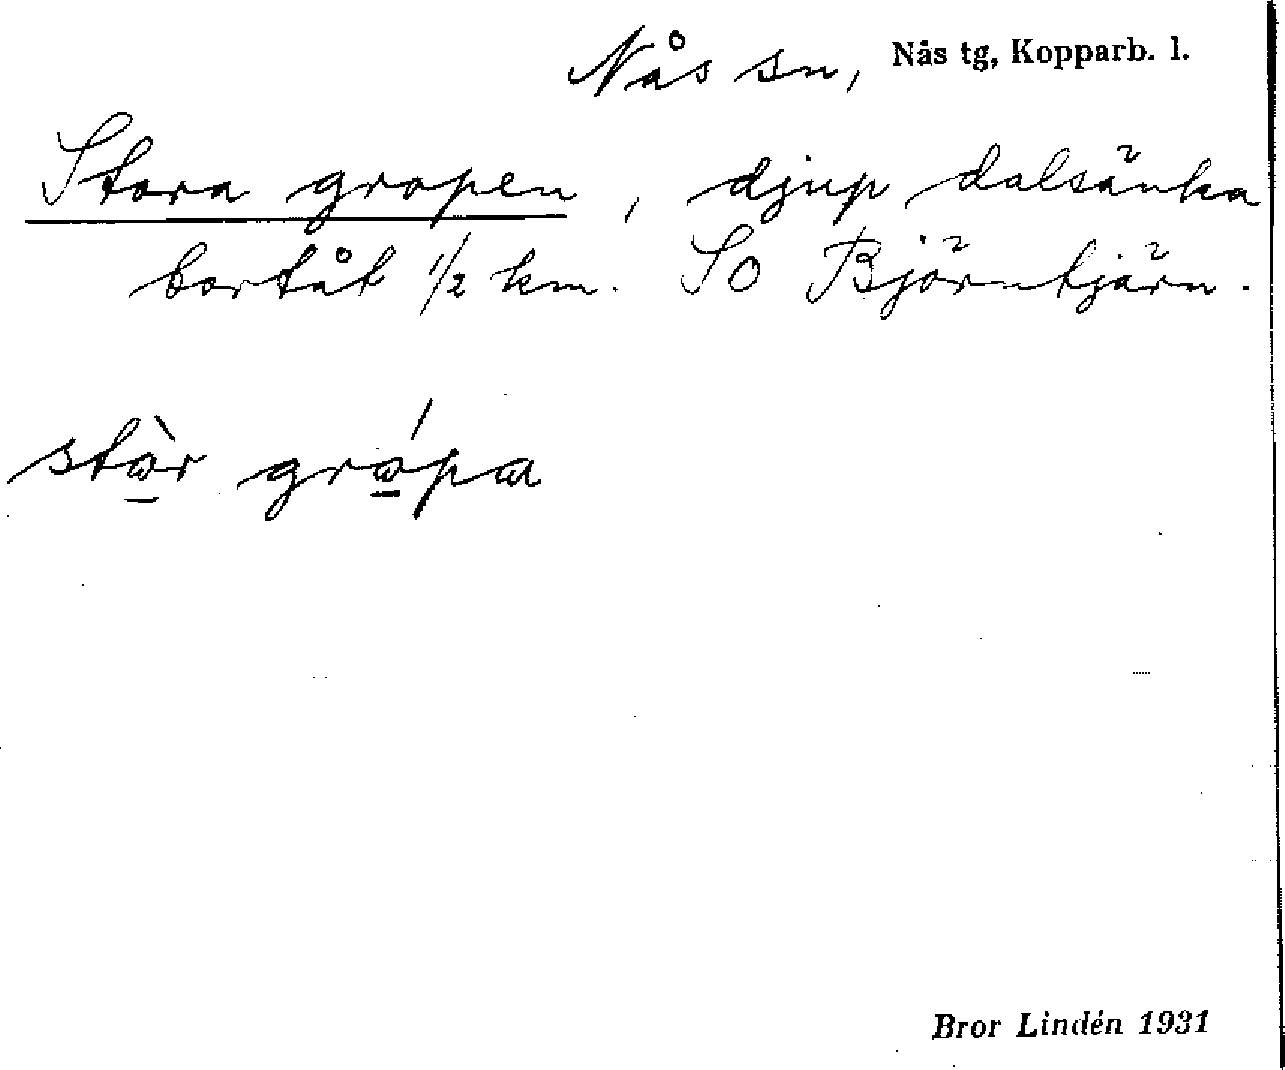 Nås sn, Nås tg, Kopparb. l.
Stora gropen, djup dalsänka
bortåt 1/2 km. SO Björntjärn.
stò̲r gró̲pa
Bror Lindén 1931